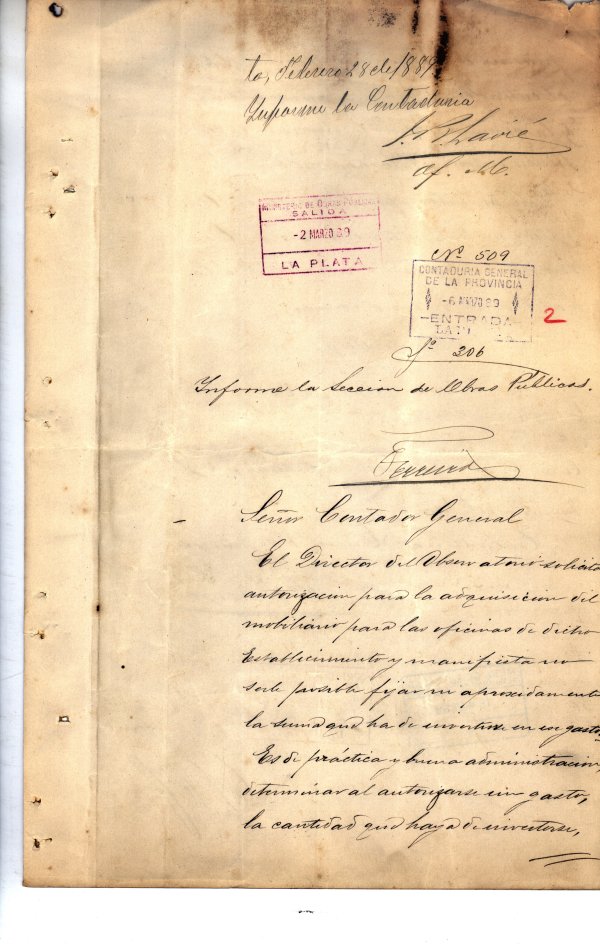 to, Febrero 28 de 1889
Informe la Contaduria
Of. M.
MINISTERIO DE OBRAS PUBLICAS
SALIDA
-2 MARZO 89
LA PLATA
Nº 509
CONTADURIA GENERAL
DE LA PROVINCIA
-6 MARZO 89
-ENTRADA-
2
206
Informe la Seccion de Obras Publicas.
Señor Contador General
El Director del Observatorio solicita
autorizacion para la adquisicion del
mobiliario para las oficinas de dicho
Establecimiento y manifiesta no
serle posible fijar ni aproxidamente
la suma que ha de invertirse en ese gasto.
Es de práctica y buena administracion,
determinar al autorizarse un gasto,
la cantidad que haya de invertirse,